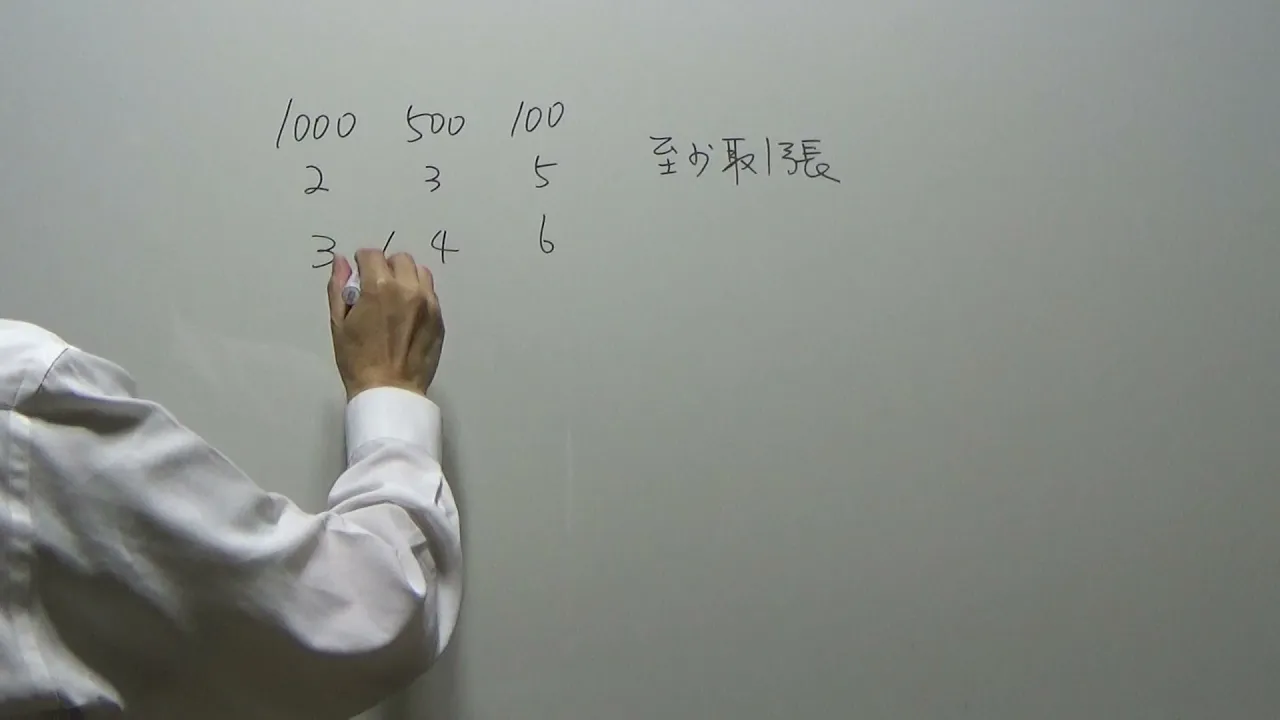 1000 500 100
2 3 5 至少取1張
3 4 6